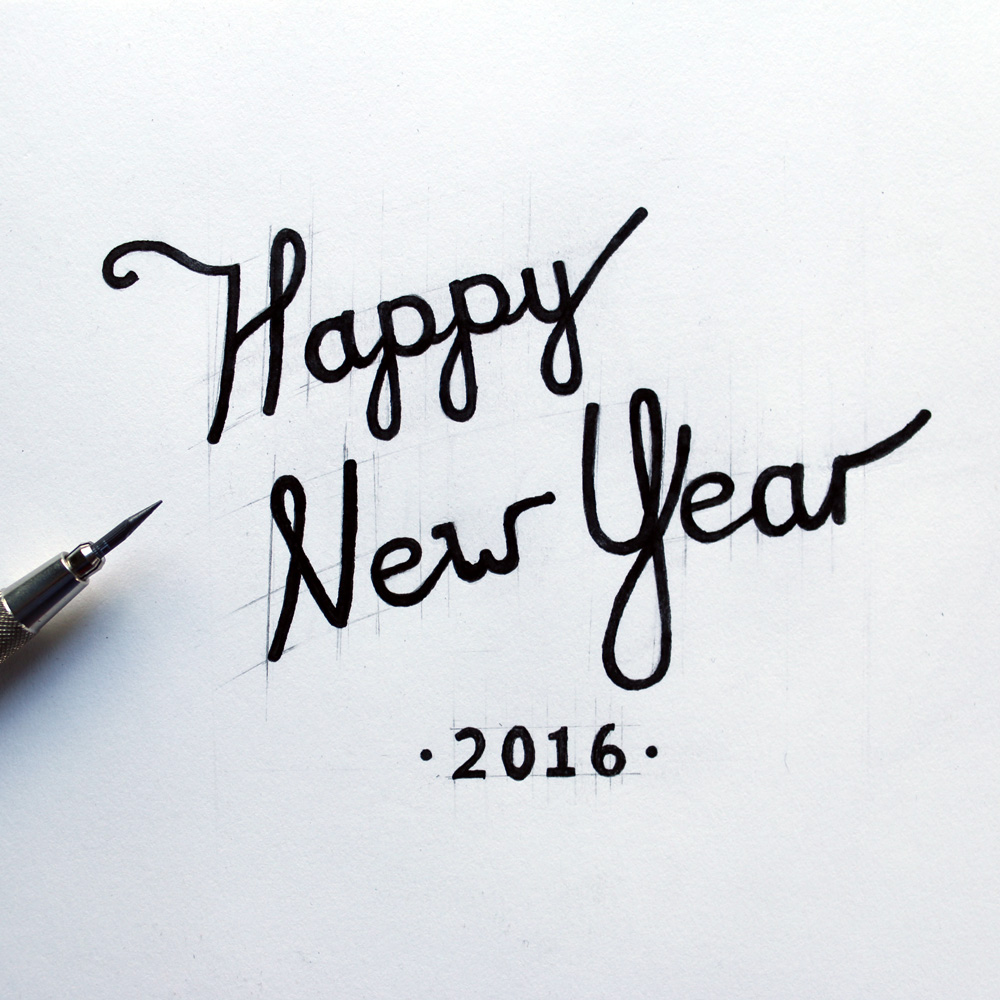 Happy
New Year
· 2016 ·